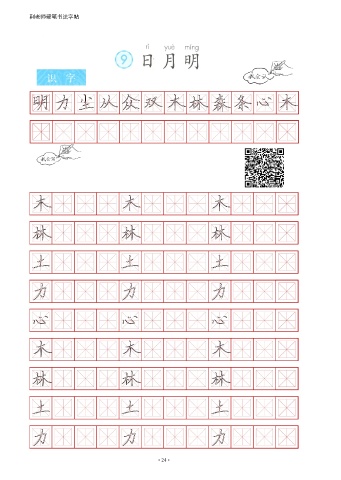 田老师硬笔书法字帖
rì yuè míng
9 日月明
识字
我会认
明力尘从众双木林森条心木
我会写
木 木 木
林 林 林
土 土 土
力 力 力
心 心 心
木 木 木
林 林 林
土 土 土
力 力 力
·24·